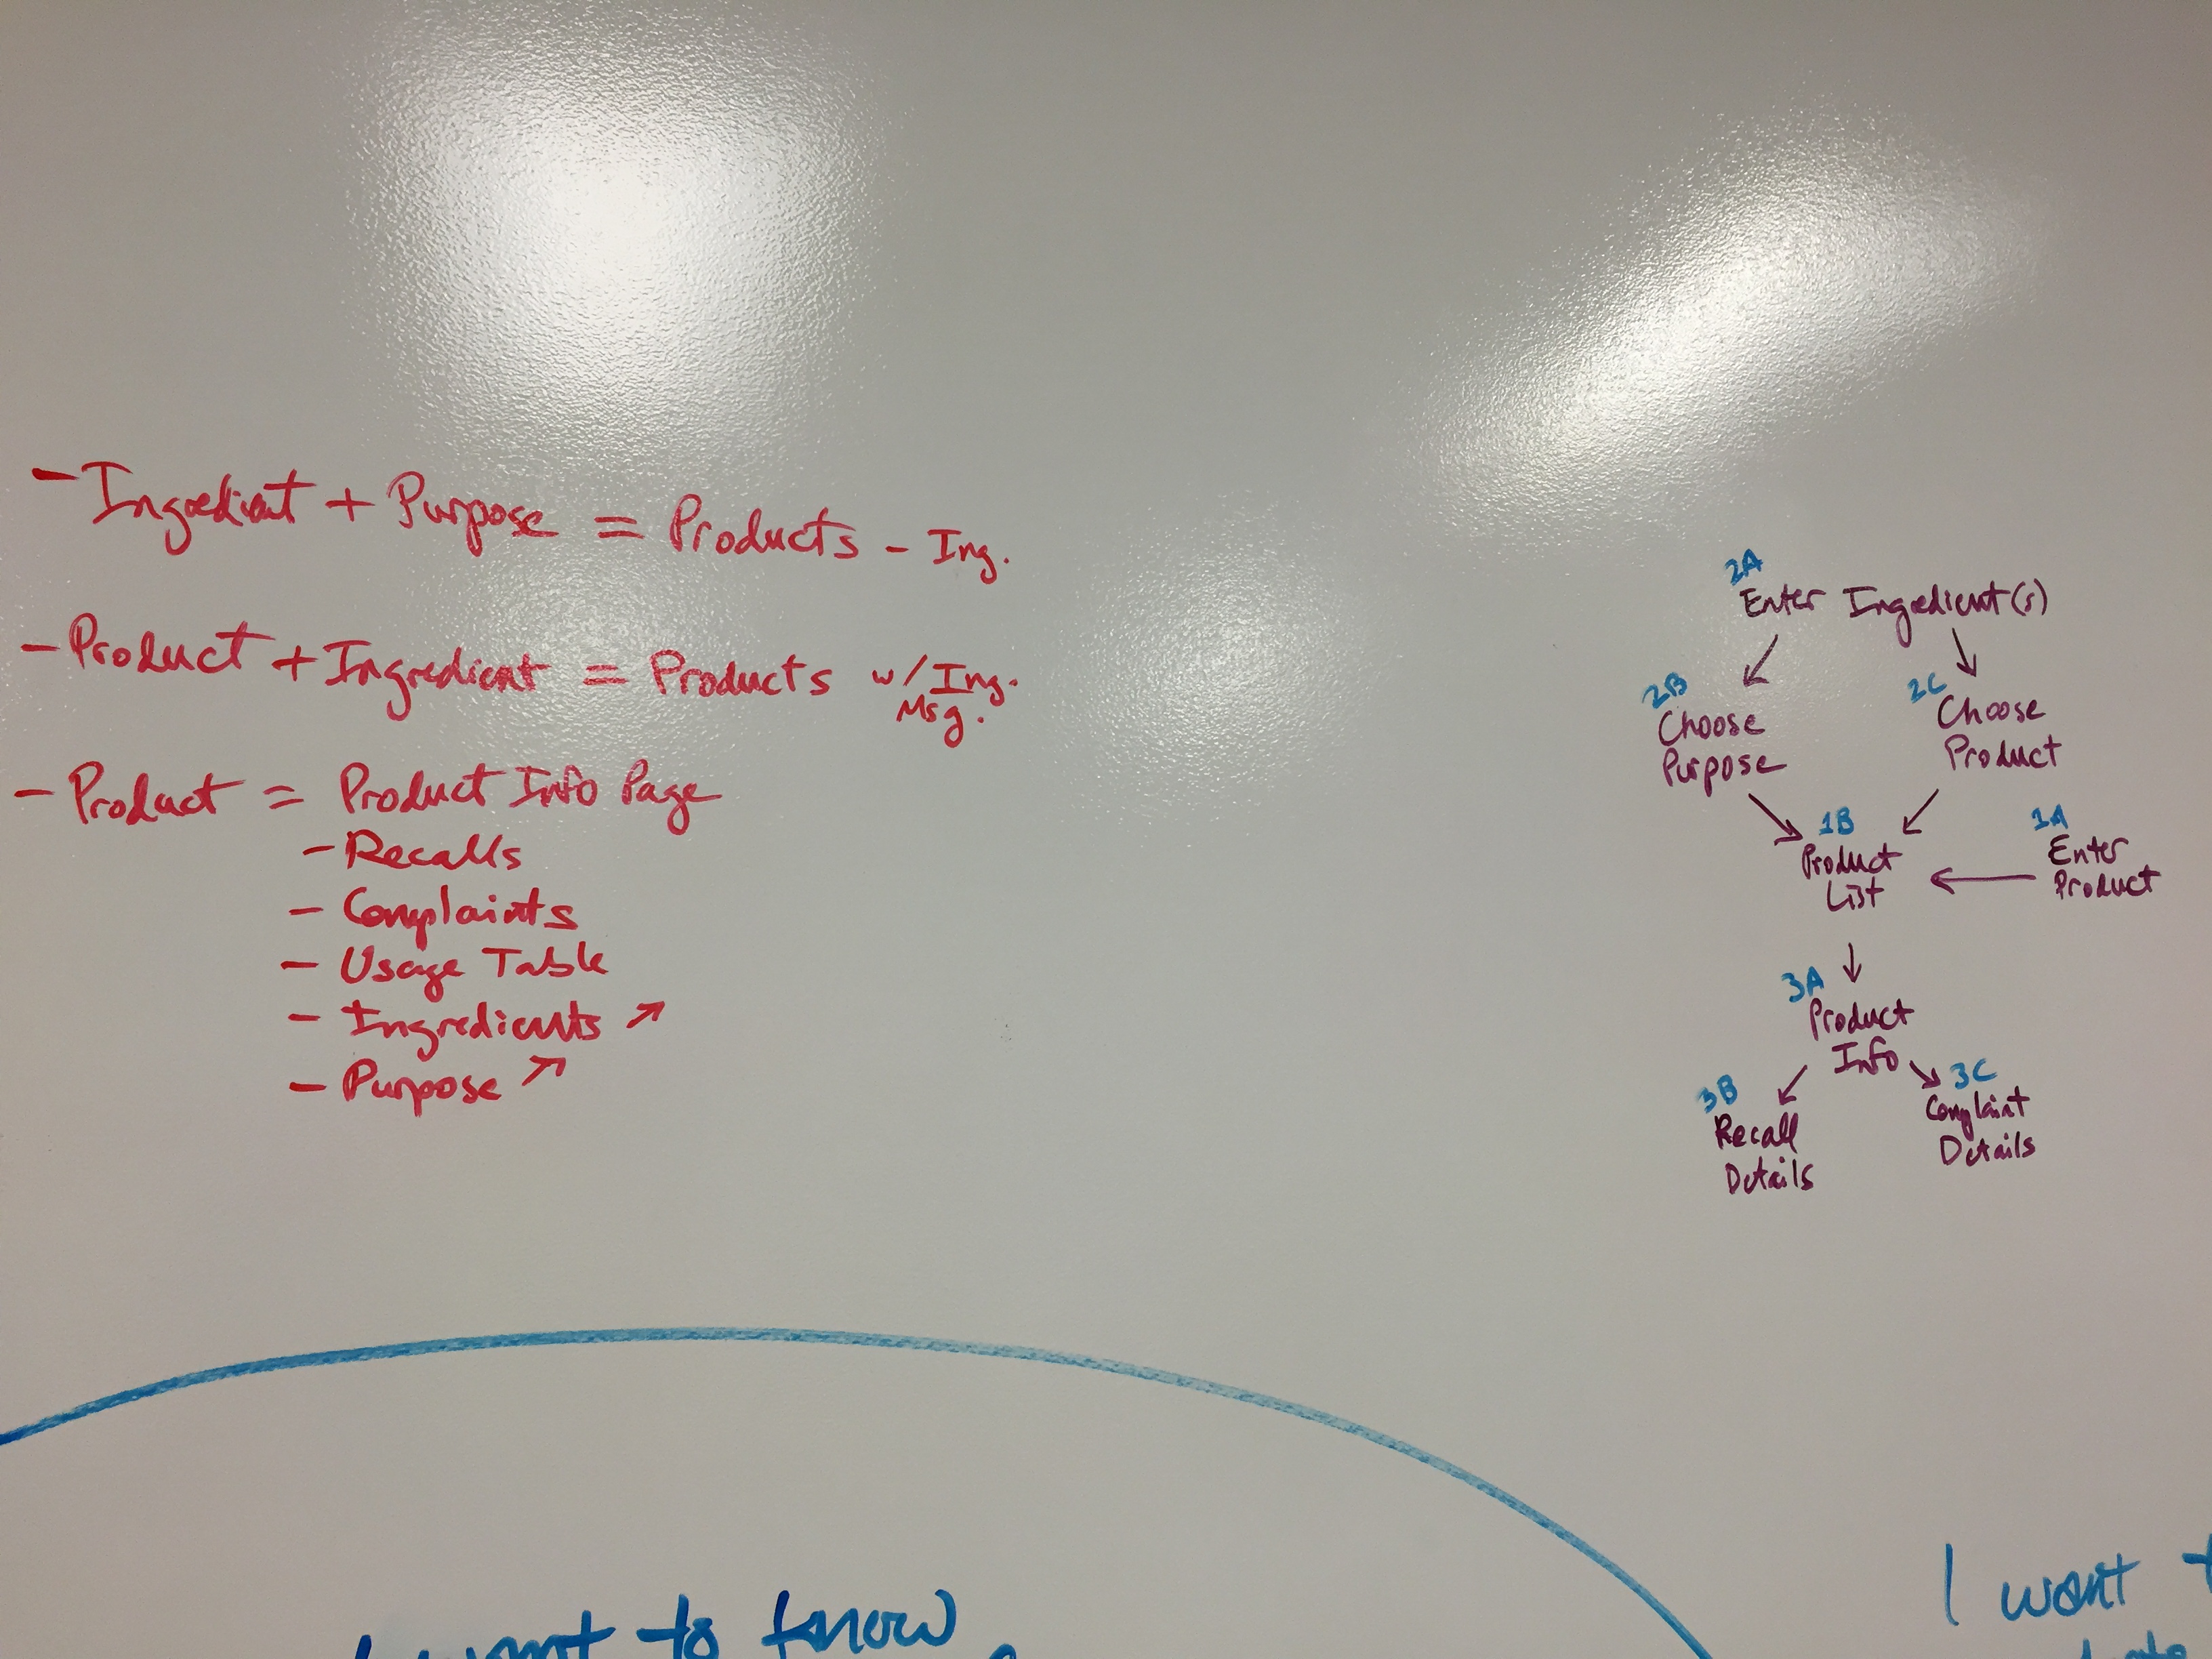 - Ingredient + Purpose = Products - Ing.
- Product + Ingredient = Products w/ Ing.
Msg.
- Product = Product Info Page
- Recalls
- Complaints
- Usage Table
- Ingredients ↗
- Purpose ↗
2A
Enter Ingredient(s)
2B
Choose
Purpose
2C
Choose
Product
1B
Product
List
1A
Enter
Product
3A
Product
Info
3B
Recall
Details
3C
Complaint
Details
I want to know
I want